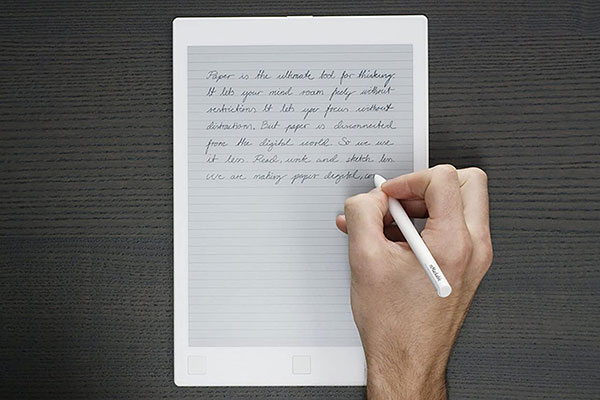 Paper is the ultimate tool for thinking.
It lets your mind roam freely without
restrictions. It lets you focus without
distractions. But paper is disconnected
from the digital world. So we use
it less. Read, write and sketch less
We are making paper digital,